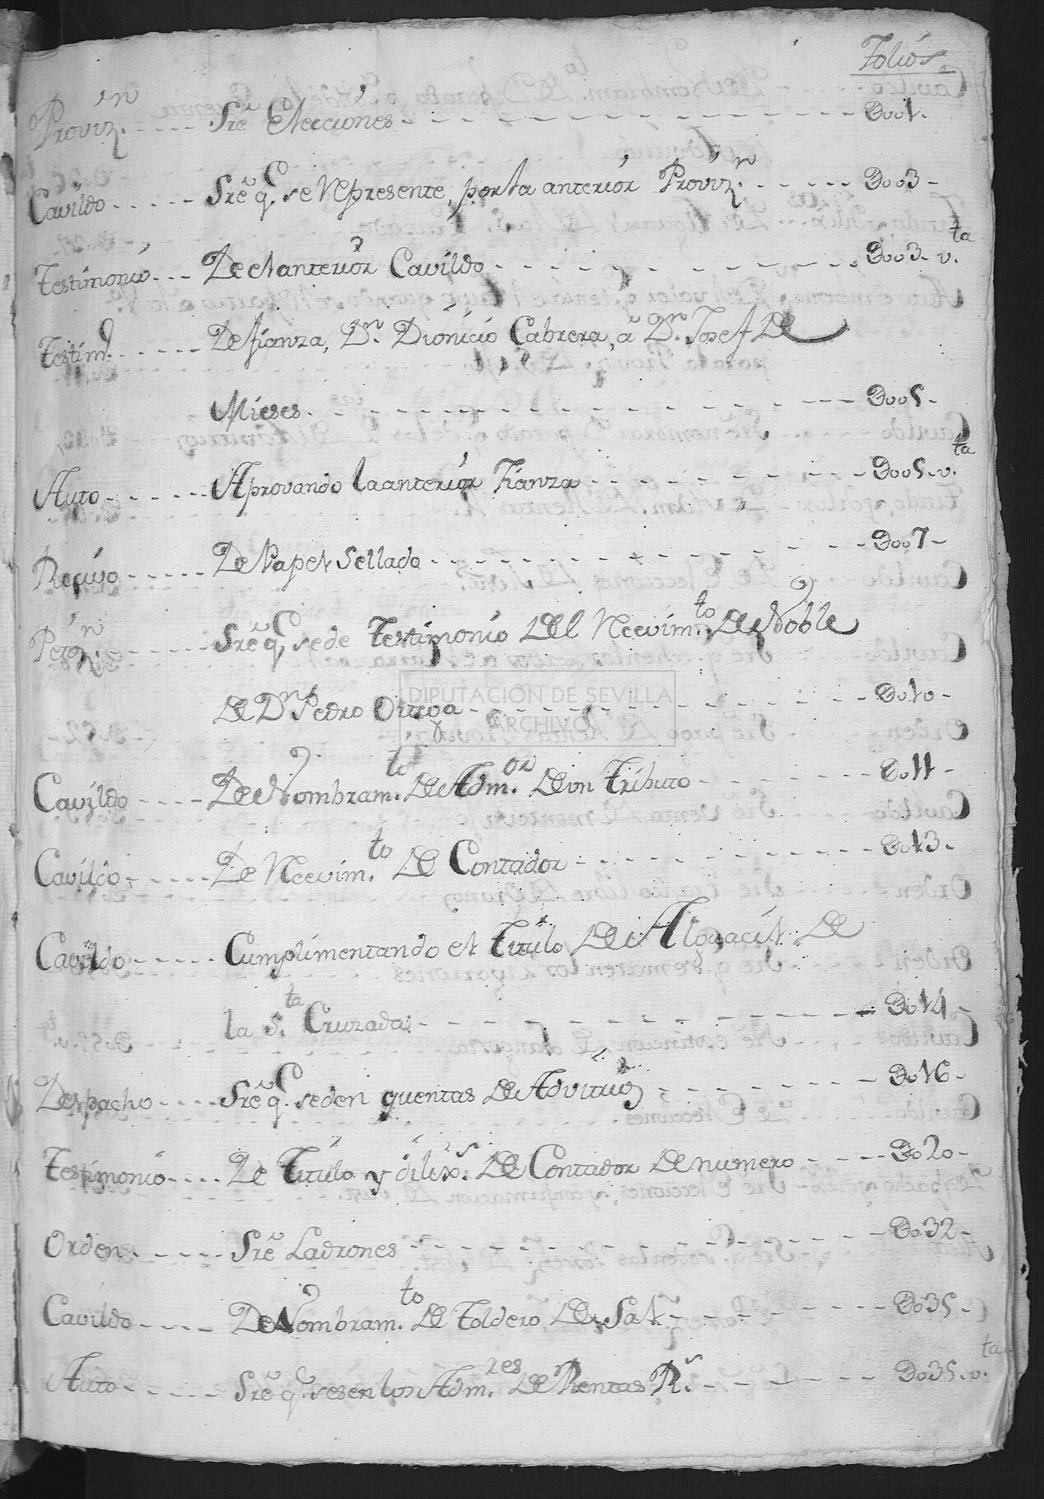 Folios
Proviz.ⁿ ----- Sre Elecciones --------- D001.
Cavildo ----- Sre q.e se represente, por la anterior Proviz.n ------ D003-
Testimonio --- De el anterior Cavildo -------- D003-v.ta
Testim.o ---- De fianza, D.n Dionicio Cabrera, a D.n Josef de
Mieses. --------- D005-
Auto ------ Aprovando la anterior Fianza ------- D005-v.ta
Recivo ----- De Papel Sellado --------- D007-
Sre q.e se de Testimonio del Recivim.to de Noble
de D.n Pedro ------- D010-
Cavildo ---- De Nombram.to de Adm.or de un Tributo ------ D011-
Cavildo, ---- De Recivim.to de Contador -------- D013-
Cavildo ----- Cumplimentando el Titulo de Alguacil de
la S.ta Cruzada. --------- D014-
Despacho ---- Sre q.e se den quentas de Advitrios ------ D016-
Testimonio ---- De Titulo y dilix.s de Contador de numero ---- D020-
Orden. ----- Sre Ladrones --------- D032-
Cavildo ---- De Nombram.to de Toldero de Sal. ------- D035-
Auto ----- Sre q.e sesen los Adm.res de Rentas R.s ------ D035-v.ta
DIPUTACIÓN DE SEVILLA
ARCHIVO